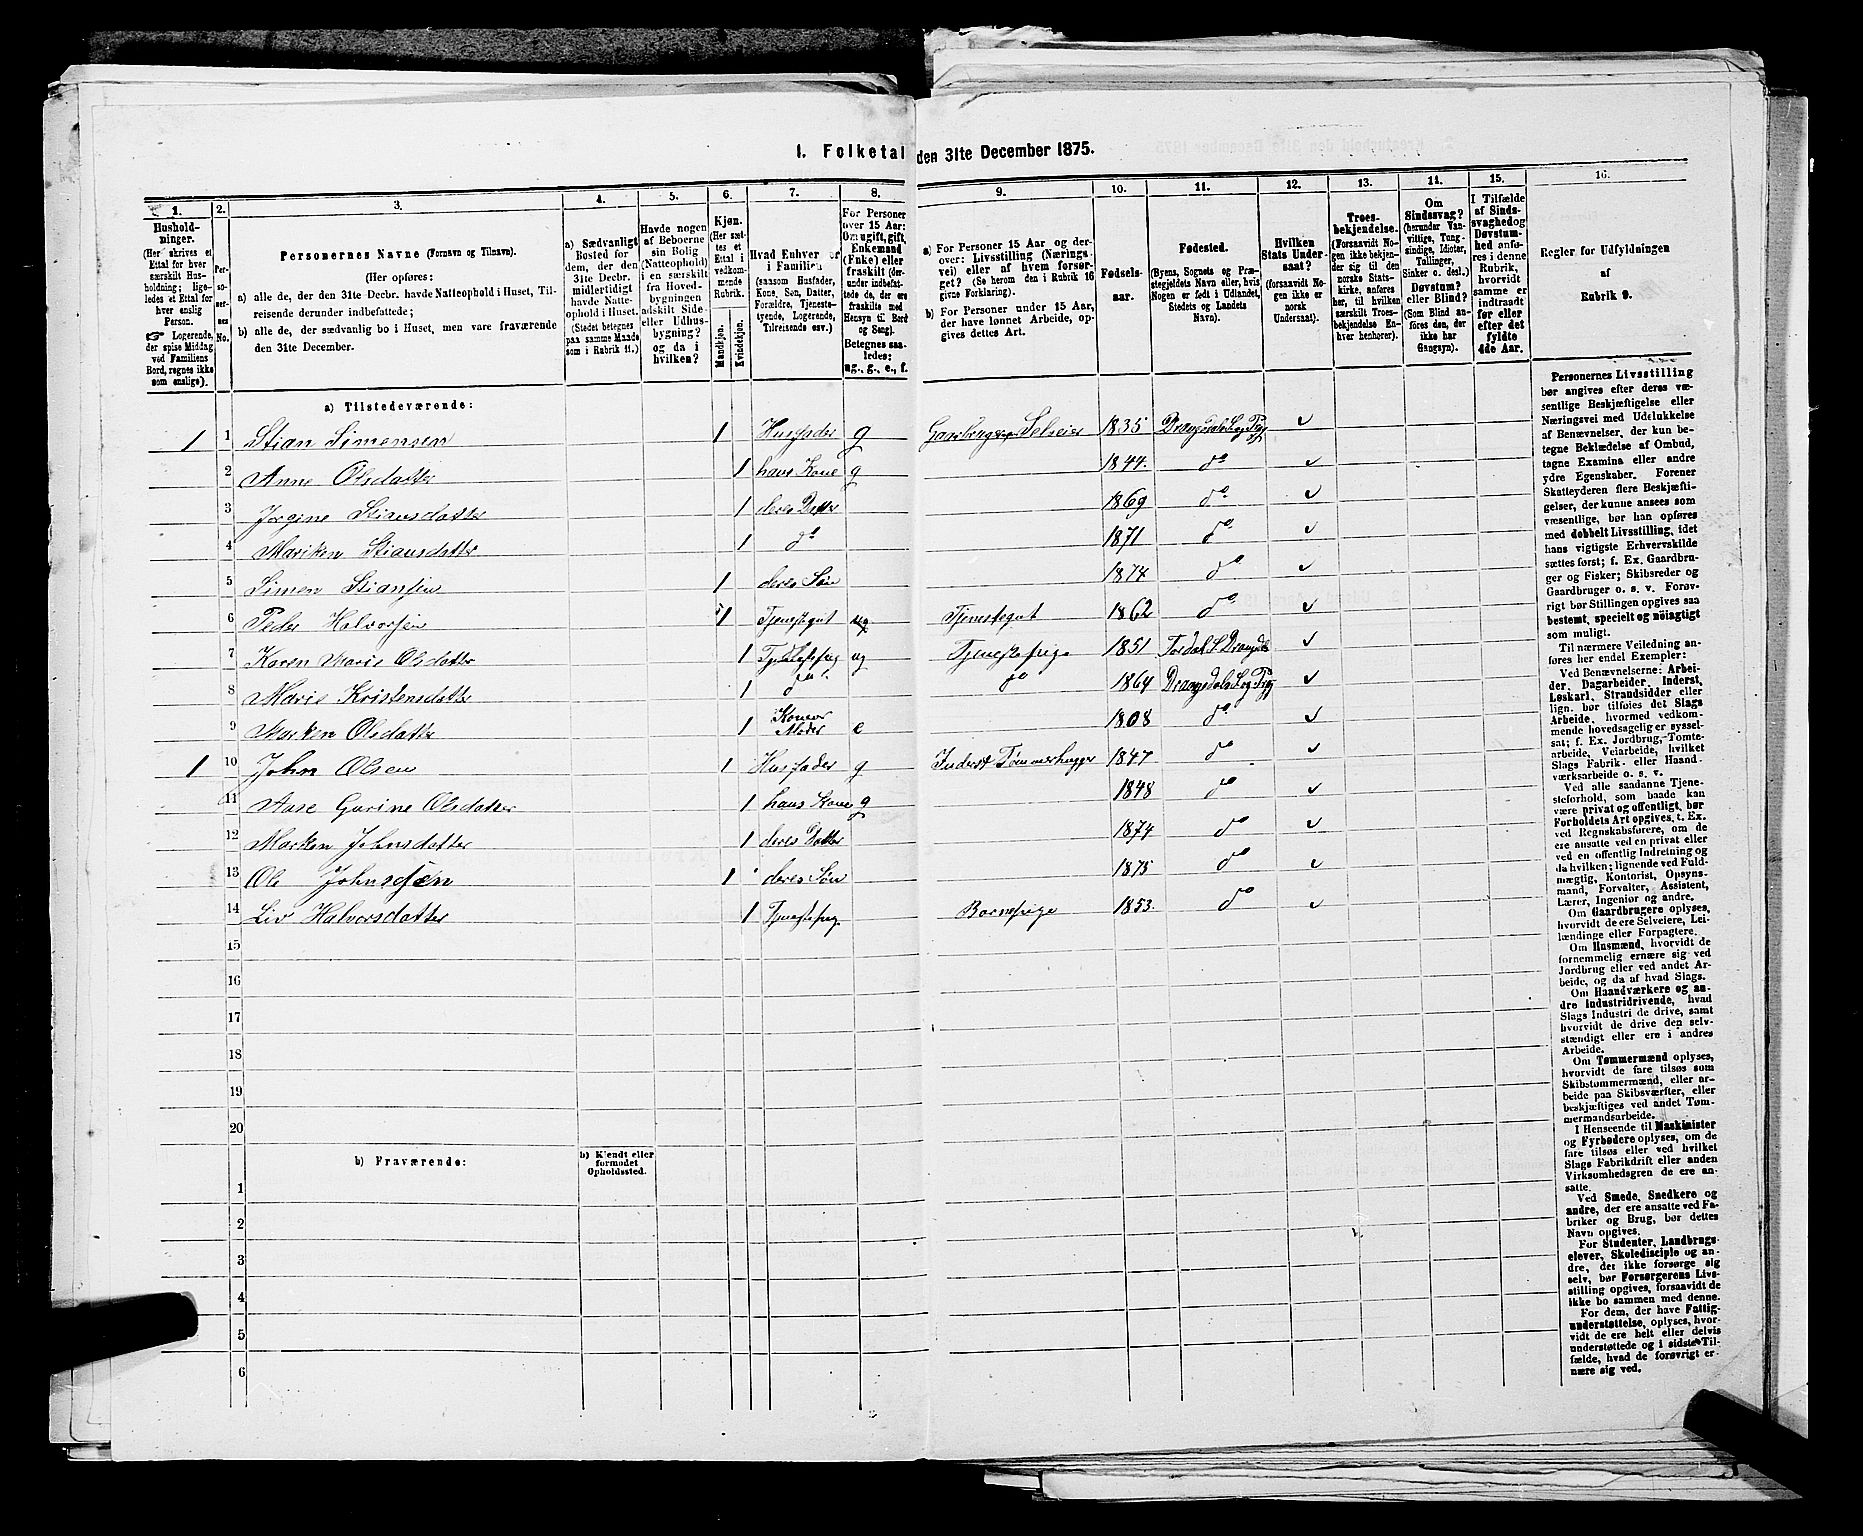 1. Folketal den 31te December 1875.
1. 2. 3. 4. 5. 6. 7. 8. 9. 10. 11. 12. 13. 14. 15. 16.
Hushold-
ninger.
(Her skrives et
Ettal for hver
særskilt Hus-
holdning; lige-
ledes et Ettal for
hver enslig
Person.
☞ Logerende,
der spise Middag
ved Familiens
Bord, regnes ikke
som enslige).
Per-
so-
ner-
nes
No.
Personernes Navne (Fornavn og Tilnavn).
(Her opføres:
a) alle de, der den 31te Decbr. havde Natteophold i Huset, Til-
reisende derunder indbefattede;
b) alle de, der sædvanlig bo i Huset, men vare fraværende
den 31te December.
a) Sædvanligt
Bosted for
dem, der den
31te Decbr.
midlertidigt
havde Natte-
ophold i Huset.
(Stedet betegnes
paa samme Maade
som i Rubrik 11.)
Havde nogen
af Beboerne
sin Bolig
(Natteophold)
i en særskilt
fra Hoved-
bygningen
adskilt Side-
eller Udhus-
bygning?
og da i
hvilken?
Kjøn.
(Her sæt-
tes et
Ettal i
vedkom-
mende
Rubrik.
Mandkjøn.
Kvindekjøn.
Hvad Enhver er
i Familien
(saasom Husfader,
Kone, Søn, Datter,
Forældre, Tjeneste-
tyende, Logerende,
Tilreisende osv.)
For Personer
over 15 Aar:
Om ugift, gift,
Enkemand
(Enke) eller
fraskilt (der-
under indbefat-
tede de, der ere
fraskilte med
Hensyn til Bord
og Seng).
Betegnes saa-
ledes:
ug., g., e., f.
a) For Personer 15 Aar og der-
over: Livsstilling (Nærings-
vei) eller af hvem forsør-
get? (Se herom den i Rubrik 16
givne Forklaring).
b) For Personer under 15 Aar,
der have lønnet Arbeide, op-
gives dettes Art.
Fødsels-
aar.
Fødested.
(Byens, Sognets og Præ-
stegjeldets Navn eller, hvis
Nogen er født i Udlandet,
Stedets og Landets
Navn).
Hvilken
Stats Under-
saat?
(forsaavidt No-
gen ikke er
norsk
Undersaat).
Troes-
bekjendelse.
(Forsaavidt No-
gen ikke bekjen-
der sig til den
norske Stats-
kirke, anføres
her, til hvilken
særskilt Troes-
bekjendelse En-
hver henhorer).
Om
Sindssvag?
(herunder Van-
vittige, Tung-
sindige, Idioter,
Tullinger,
Sinker o. desl.)
Døvstum?
eller Blind?
(Som Blind an-
føres den, der
ikke har
Gangsyn).
I Tilfælde
af Sinds-
svaghed og
Døvstum-
hed anfø-
res i denne
Rubrik,
hvorvidt
samme er
indtraadt
før eller
efter det
fyldte
4de Aar.
Regler for Udfyldningen
af
Rubrik 9.
a) Tilstedeværende:
1 1 Stian Simensen 1 Husfader g Gaardbruger Selveier 1835 Drangedals S og Prg
2 Anne Olsdatter 1 hans Kone g 1844. do
3 Jorgine Stiansdatter 1 deres Datter 1869 do
4 Mariken Stiansdatter 1 do 1871 do
5 Simen Stiansen 1 deres Søn 1874 do
6 Peder Halvorsen 1 Tjenestgut ug Tjenestegut 1862 do
7 Karen Marie Olsdatter 1 Tjenestepig ug Tjenestepige 1851 Tørdal S Drangdal
8 Marie Kristensdatter 1 do do 1864 Drangedals S og Prg
9 Marken Olsdatter 1 Konens Moder e 1808 do
1 10 John Olsen 1 Husfader g Inderst Tømmerhugger 1847 do
11 Aase Gurine Olsdatter 1 hans Kone g 1848 do
12 Marken Johnsdatter 1 deres Datter 1874 do
13 Ole Johnsen 1 deres Søn 1875 do
14 Liv Halvorsdatter 1 Tjenestepig Barnepige 1853. do
15
16
17
18
19
20
b) Fraværende:
b) Kjendt eller
formodet
Opholdssted.
1
2
3
4
5
6
Personernes Livsstilling
bør angives efter deres væ-
sentlige Beskjæftigelse eller
Næringsvei med Udelukkelse
af Benævnelser, der kun be-
tegne Beklædelse af Ombud,
tagne Examina eller andre
ydre Egenskaber. Forener
Skatteyderen flere Beskjæfti-
gelser, der kunne ansees som
væsentlige, bør han opføres
med dobbelt Livsstilling, idet
hans vigtigste Erhvervskilde
sættes først; f. Ex. Gaardbru-
ger og Fisker; Skibsreder og
Gaardbruger o. s. v. Forøv-
rigt bør Stillingen opgives saa
bestemt, specielt og nøiagtigt
som muligt.
Til nærmere Veiledning an-
føres her endel Exempler:
Ved Benævnelserne: Arbei-
der, Dagarbeider, Inderst,
Løskarl, Strandsidder eller
lign. bør tilføies det Slags
Arbeide, hvormed vedkom-
mende hovedsagelig er syssel-
sat; f. Ex. Jordbrug, Tomte-
arbeide, Veiarbeide, hvilket
Slags Fabrik- eller Haand-
værksarbeide o. s. v.
Ved alle saadanne Tjene-
steforhold, som baade kan
være privat og offentligt, bør
Forholdets Art opgives, t. Ex.
ved Regnskabsførere, om de
ere ansatte ved en privat eller
ved en offentlig Indretning og
da hvilken; lignende ved Fuld-
mægtig, Kontorist, Opsyns-
mand, Forvalter, Assistent,
Lærer, Ingeniør og andre.
Om Gaardbrugere oplyses,
hvorvidt de ere Selveiere, Lei-
lændinge eller Forpagtere.
Om Husmænd, hvorvidt de
fornemmelig ernære sig ved
Jordbrug eller ved andet Ar-
beide, og da af hvad Slags.
Om Haandværkere og an-
dre Industridrivende, hvad
Slags Industri de drive, samt
hvorvidt de drive den selv-
stændigt eller ere i andres
Arbeide.
Om Tømmermænd oplyses,
hvorvidt de fare tilsøs som
Skibstømmermænd, eller ar-
beide paa Skibsværfter, eller
beskjæftiges ved andet Tøm-
mermandsarbeide.
I Henseende til Maskinister
og Fyrbødere oplyses, om de
fare tilsøs eller ved hvilket
Slags Fabrikdrift eller anden
Virksomhedsgren de ere an-
satte.
Ved Smede, Snedkere og
andre, der ere ansatte ved Fa-
briker og Brug, bør dettes
Navn opgives.
For Studenter, Landbrugs-
elever, Skoledisciple og an-
dre, der ikke forsørge sig
selv, bør Forsørgerens Livs-
stilling opgives, forsaavidt de
ikke bo sammen med denne.
For dem, der have Fattig-
understøttelse, oplyses, hvor-
vidt de ere helt eller delvis
understøttede og i sidste Til-
fælde, hvad de forøvrigt er-
nære sig ved.